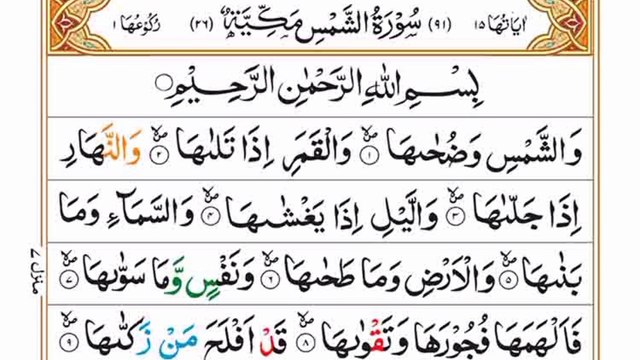 اٰیَاتُهَا ١٥ (٩١) سُوْرَةُ الشَّمْسِ مَكِّيَّةٌ (٢٦) رُكُوْعُهَا ١
بِسْمِ اللهِ الرَّحْمٰنِ الرَّحِيْمِ
وَالشَّمْسِ وَضُحٰىهَا ۙ ١ وَالْقَمَرِ اِذَا تَلٰىهَا ۙ ٢ وَالنَّهَارِ
اِذَا جَلّٰىهَا ۙ ٣ وَالَّيْلِ اِذَا يَغْشٰىهَا ۙ ٤ وَالسَّمَآءِ وَمَا
بَنٰىهَا ۙ ٥ وَالْاَرْضِ وَمَا طَحٰىهَا ۙ ٦ وَنَفْسٍ وَّمَا سَوّٰىهَا ۙ ٧
فَاَلْهَمَهَا فُجُوْرَهَا وَتَقْوٰىهَا ۙ ٨ قَدْ اَفْلَحَ مَنْ زَكّٰىهَا ۙ ٩
منزل ٧